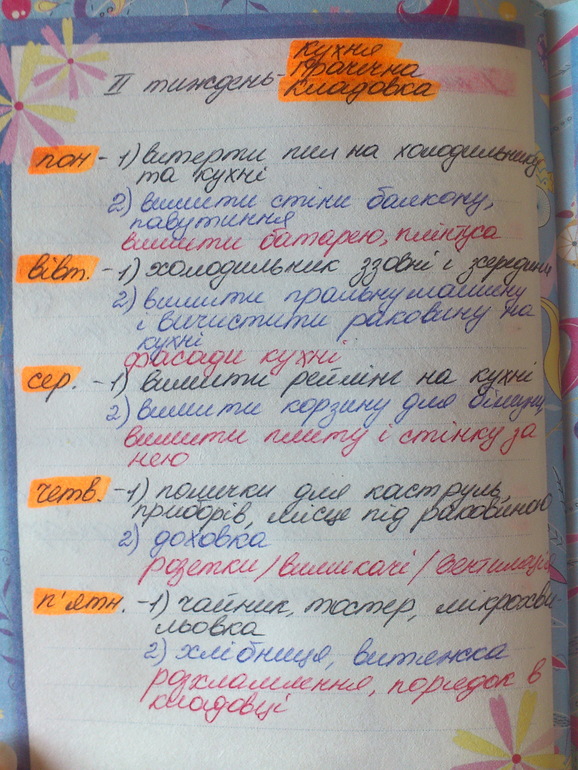 кухня
II тиждень - прачечна
кладовка
пон - 1) витерти пил на холодильнику
та кухні
2) вимити стіни балкону,
павутиння
вимити батарею, плінтуса
вівт. - 1) холодильник ззовні і зсередини
2) вимити пральну машину
і вичистити раковину на
кухні
фасади кухні
сер. - 1) вимити рейлінг на кухні
2) вимити корзину для білизни
вимити плиту і стінку за
нею
четв. - 1) полички для каструль,
приборів, місце під раковиною
2) доховка
розетки/вимикачі/вентиляція
п'ятн. - 1) чайник, тостер, мікрохви-
льовка
2) хлібниця, витяжка
розхламлення, порядок в
кладовці